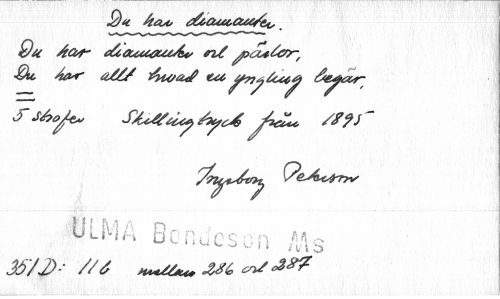 Du har diamanter.
Du har diamanter och pärlor,
Du har allt hvad en yngling begär,
5 strofer Skillingtryck från 1895
Ingeborg Peterson
ULMA Bondeson Ms
351 D: 11 b mellan 286 och 287